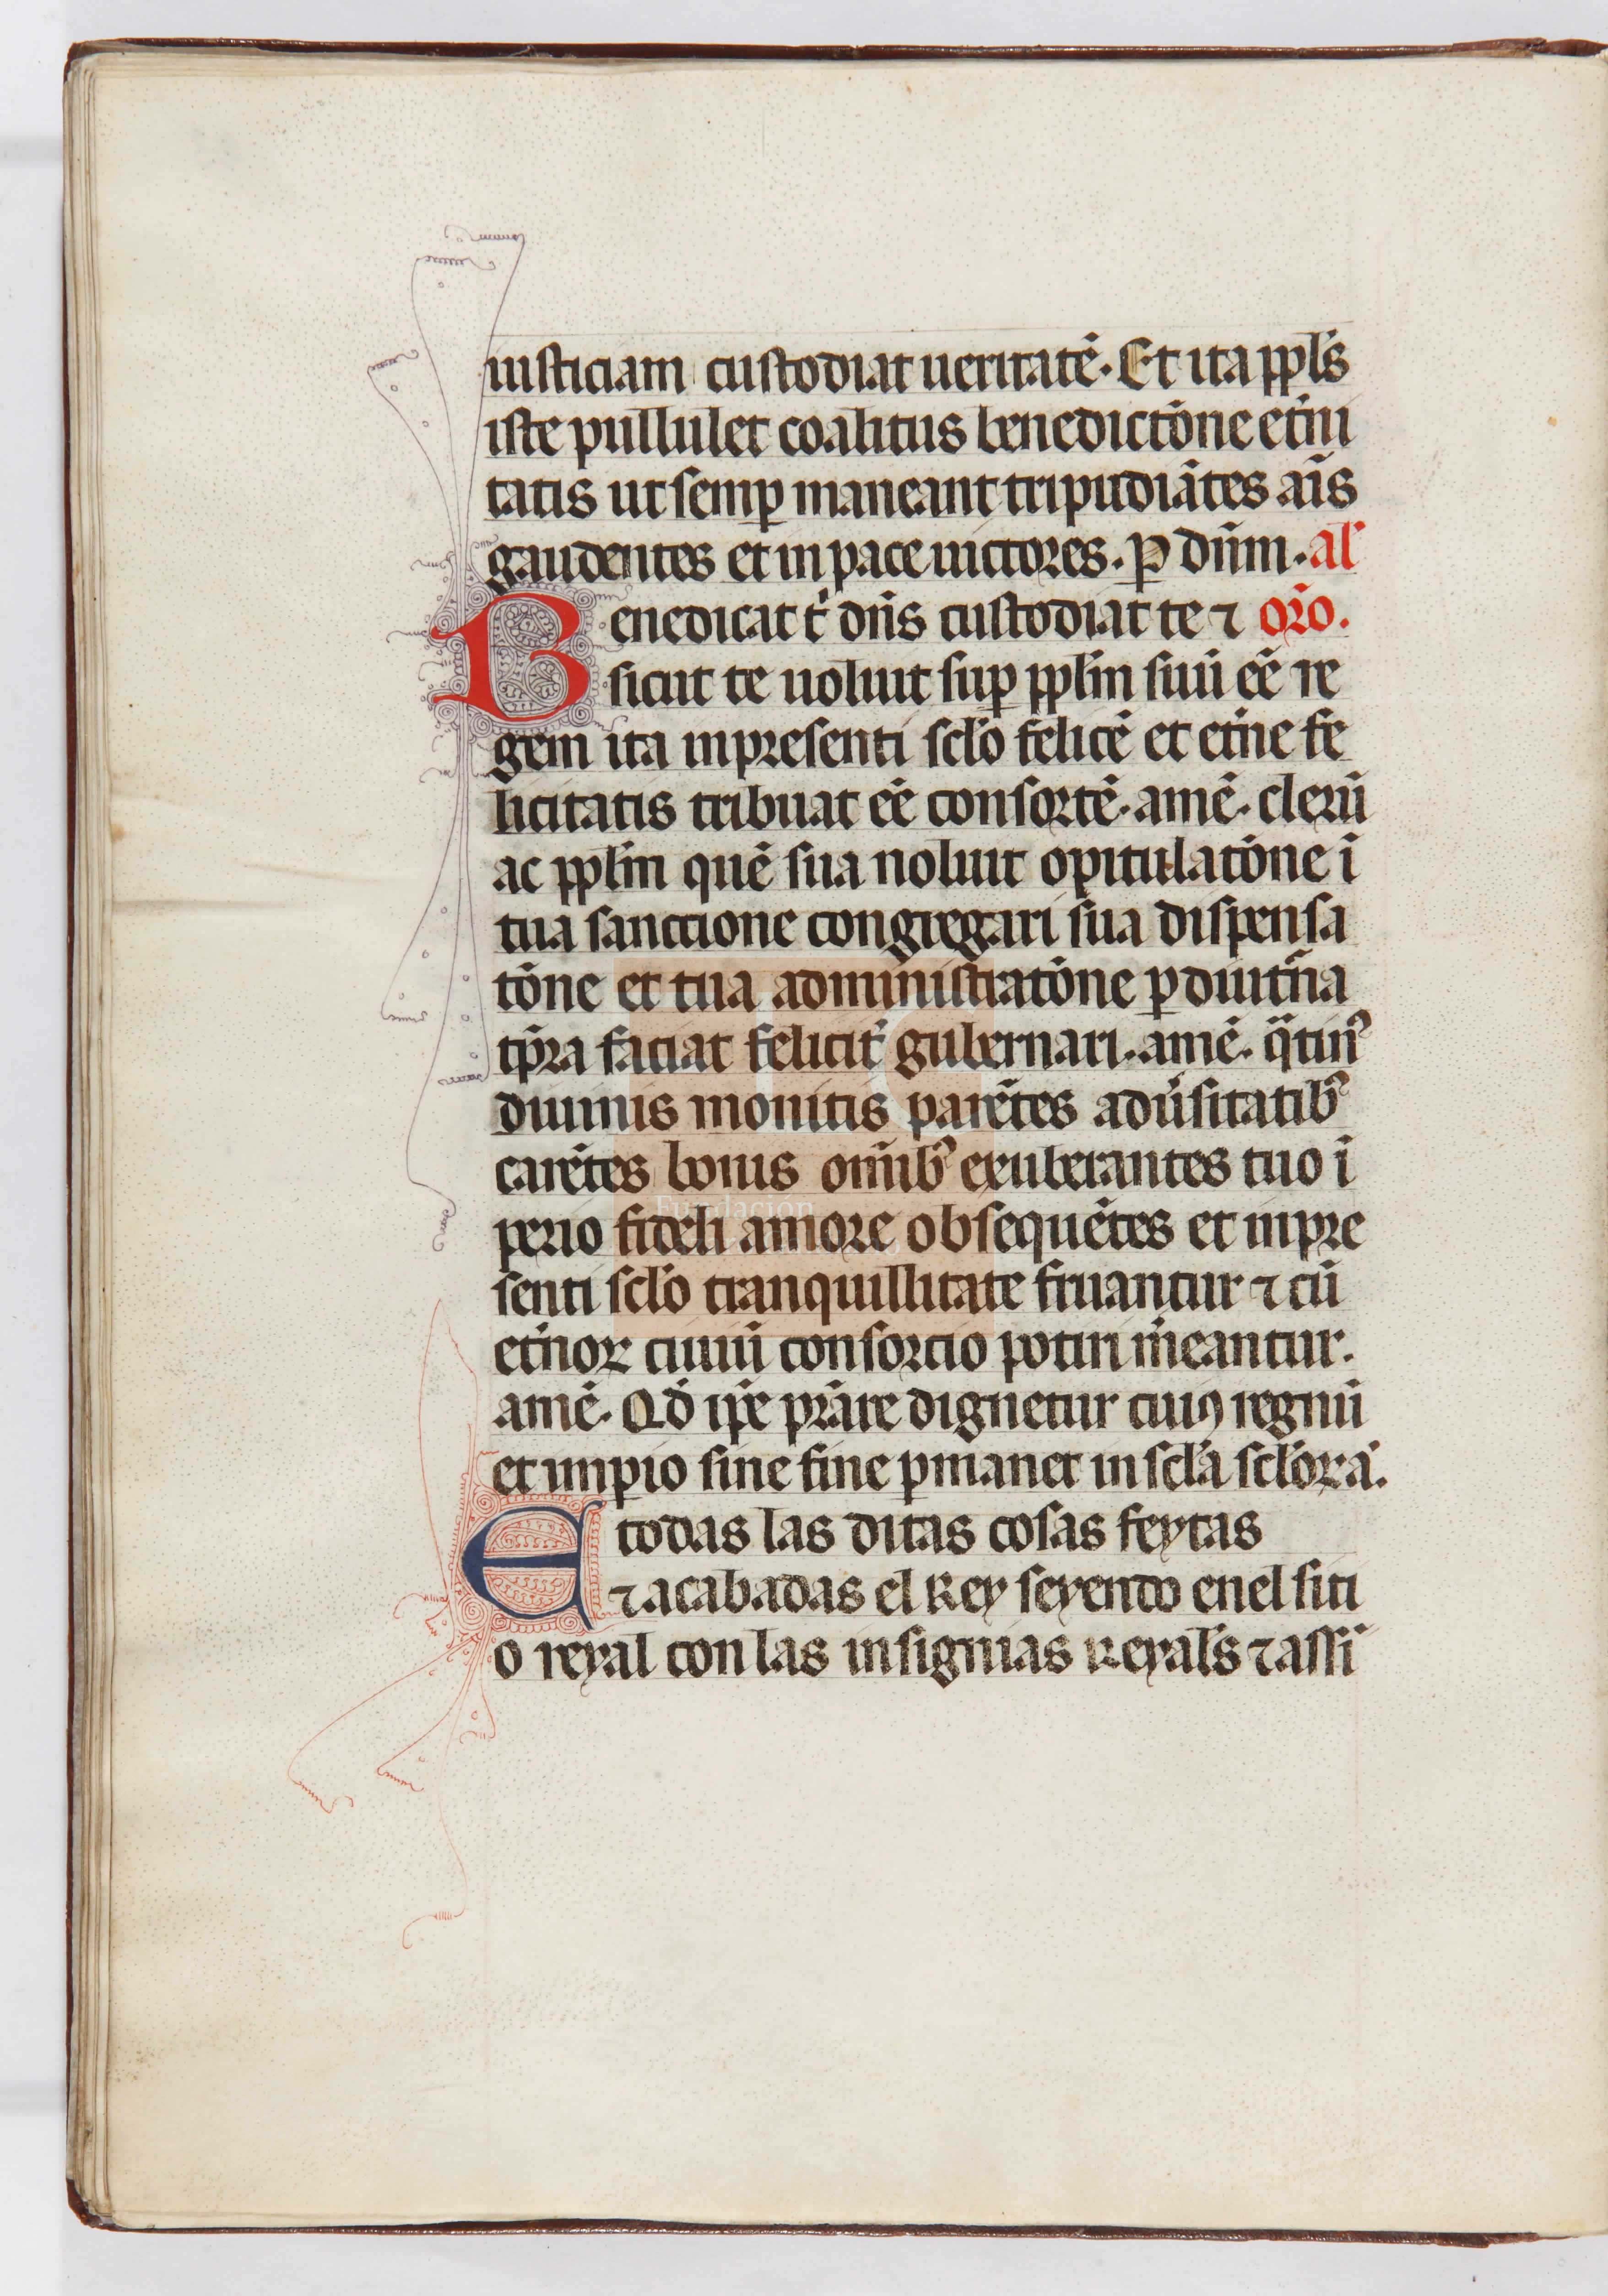 iusticiam custodiat ueritatē. Et ita ppl̄s
iste pullulet coalitus benedictōne et̉ni
tatis ut semꝑ maneant tripudiātes aīs
gaudentes et in pace uictores. ꝑ dn̄m. al̉
Benedicat t̉ dn̄s custodiat te ⁊ or̄o.
sicut te uoluit suꝑ ppl̄m suū eē re
gem ita in presenti scl̄o felicē et et̉ne fe
licitatis tribuat eē consortē. amē. clerū
ac ppl̄m quē sua uoluit opitulatōne ī
tua sanctione congregari sua dispensa
tōne et tua administratōne ꝑ diut̉na
tp̄ra faciat felicit̉ gubernari. amē. q̄tinꝰ
diuinis monitis parētes adūsitatibꝰ
carētes bonis om̄ibꝰ exuberantes tuo ī
perio fideli amore obsequētes et in pre
senti scl̄o tranquillitate fruantur ⁊ cū
et̉noꝝ ciuiū consorcio potiri m̉eantur.
amē. Qd̉ ip̄e prāre dignetur cuiꝯ regnū
et imꝑio sine fine ꝑmanet in scl̄a scl̄oꝝ. a.
E todas las ditas cosas feytas
⁊ acabadas el Rey seyendo en el siti
o reyal con las insignias Reyal̉s ⁊ assi
Fundacion